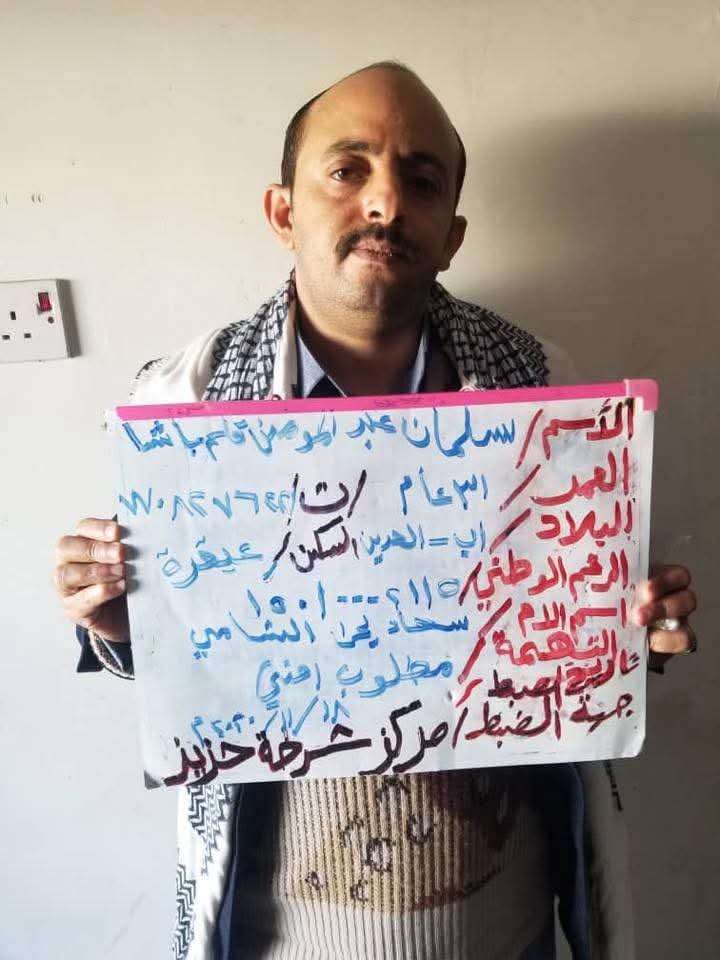 الأسم / سلمان عبد المؤمن قاسم باشا
العمر / ٣١ عام / ت / ٧٧٠٨٢٧٦٤٤
البلاد / اب - العدين السكن / عيقرة
الرقم الوطني / ١٥٠١٠٠٠٢١١٥
اسم الام / سعاد يحيا الشامي
التهمة / مطلوب امني
تاريخ الضبط / ١٨/١١/٢٠٢٠م
جهة الضبط / مركز شرطة حزيز